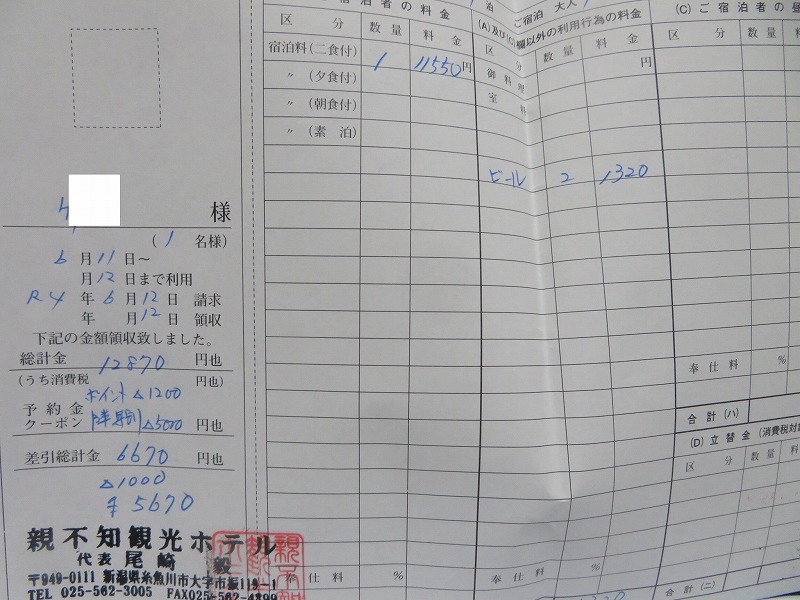 様
(1 名様)
6月11日～
月12日まで利用
R4年6月12日 請求
年 月12日 領収
下記の金額領収致しました。
総計金 12870 円也
(うち消費税 円也)
ポイント △1200
予約金
クーポン △5000 円也
差引総計金 6670 円也
△1000
¥5670
親不知観光ホテル
代表 尾崎 毅
〒949-0111 新潟県糸魚川市大字市振119-1
TEL 025-562-3005 FAX025-562-4899
宿泊者の料金
区 分 数量 料金
宿泊料(二食付) 1 11550円
〃 (夕食付)
〃 (朝食付)
〃 (素 泊)
奉仕料 %
ご宿泊 大人
(A)及び(C)欄以外の利用行為の料金
区 分 数量 料 金
御料理 円
室 料
ビール 2 1320
奉仕料 %
(C)ご宿泊者の昼
区 分 数量 料
奉仕料 %
合計(ハ)
(D)立替金(消費税対
区 分 数量 料
合計(ニ)